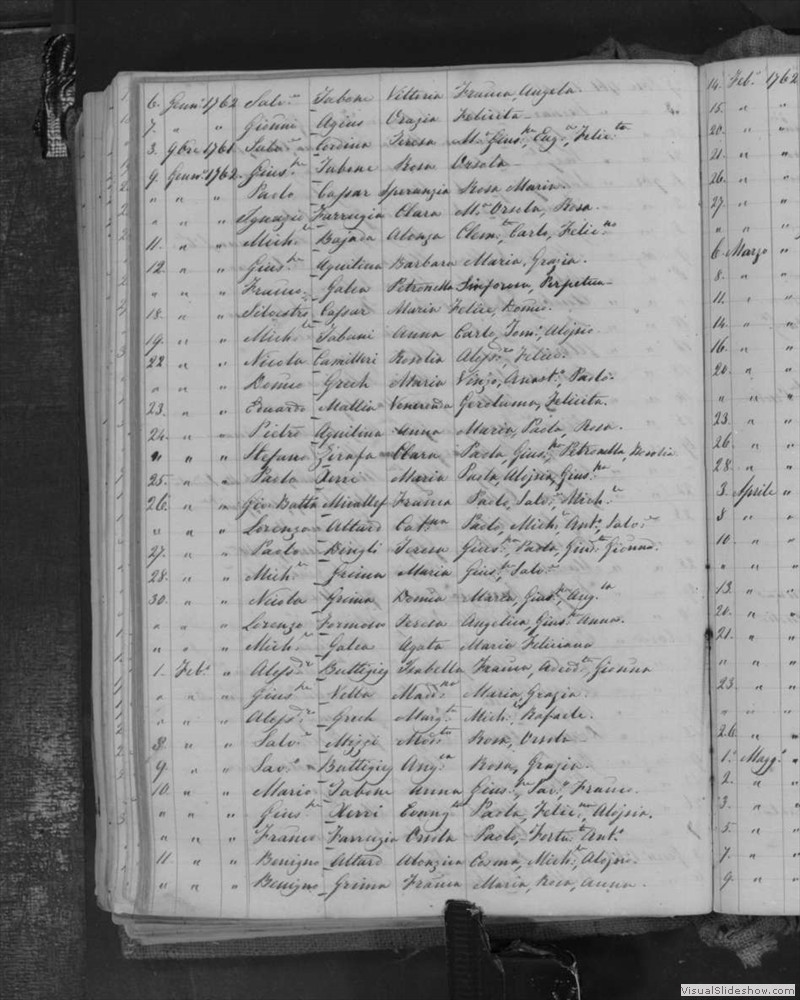 6. Genn.o 1762 Salv.e Tabone Vittoria Franca, Angela
7. " " Gionni Agius Orazia Felicita
3. 9bre 1761 Salv.e Cordina Teresa M.a Gius.pa, Eug.a, Felic.ta
9. Genn.o 1762. Gius.pe Tabone Rosa Orsola
" " " Paolo Cassar Speranzia Rosa Maria.
" " " Ignazio Farrugia Clara M.a Orsola, Rosa.
11. " " Mich.le Bajada Alonza Clem.te, Carlo, Felic.no
12. " " Gius.pe Aquilina Barbara Maria, Grazia.
" " " Franco. Galea Petronella Sinforosa, Perpetua
18. " " Silvestro Cassar Maria Felice, Domco.
19. " " Mich.le Tabani Anna Carlo, Tom.o, Alojsio
22 " " Nicola Camilleri Rosolia Aless.ro, Felice.
" " " Domco Grech Maria Vinzo, Anast.a, Paolo.
23. " " Eduardo Mallia Veneranda Geroluma, Felicita.
24. " " Pietro Aquilina Anna Maria, Paola, Rosa.
" " " Stefano Zirafa Clara Paola, Gius.pa, Petronella, Rosolia
25. " " Paolo Xerri Maria Paola, Alojsia, Gius.pa
26. " " Gio Batta Micallef Franca Paolo, Salv.e, Mich.le
" " " Lorenzo Attard Cat.na Paolo, Mich.le, Ant.o, Salv.e
27. " " Paolo Dingli Teresa Gius.pa, Paola, Gionna.
28. " " Mich.le Grima Maria Gius.pe, Salv.e
30. " " Nicola Grima Domca Maria, Gius.pa, Ang.ca
" " " Lorenzo Formosa Teresa Angelica, Gius.pa Anna.
" " " Mich.le Galea Agata Maria Feliciana
1. Feb.o " Aless.ro Buttigieg Isabella Franca, Gionna
" " " Gius.pe Vella Mad.na Maria, Grazia.
" " " Aless.ro Grech Marg.ta Mich.le, Rafaele.
8. " " Salv.e Mizzi Mod.ta Rosa, Orsola
9. " " Sav.o Buttigieg Ang.ca Rosa, Grazia.
10. " " Mario Tabone Anna Gius.pe, Sav.o, Franco.
" " " Gius.pe Xerri Evang.ta Paola, Felic.na, Alojsia.
" " " Franco Farrugia Orsola Paolo, Fort.to, Ant.o
11. " " Benigno Attard Alonzica Cosma, Mich.le, Alojsio.
" " " Benigno Grima Franca Maria, Rosa, Anna.
14. Feb.o 1762
15. " "
20. " "
21. " "
26. " "
27. " "
" " "
6 Marzo "
8. " "
11. " "
14. " "
16. " "
20. " "
" " "
23. " "
26. " "
28. " "
3. Aprile "
8 " "
10. " "
" " "
13. " "
20. " "
21. " "
" " "
23. " "
" " "
26. " "
1.o Magg.o "
2. " "
3. " "
5. " "
7. " "
9. " "
VisualSlideshow.com